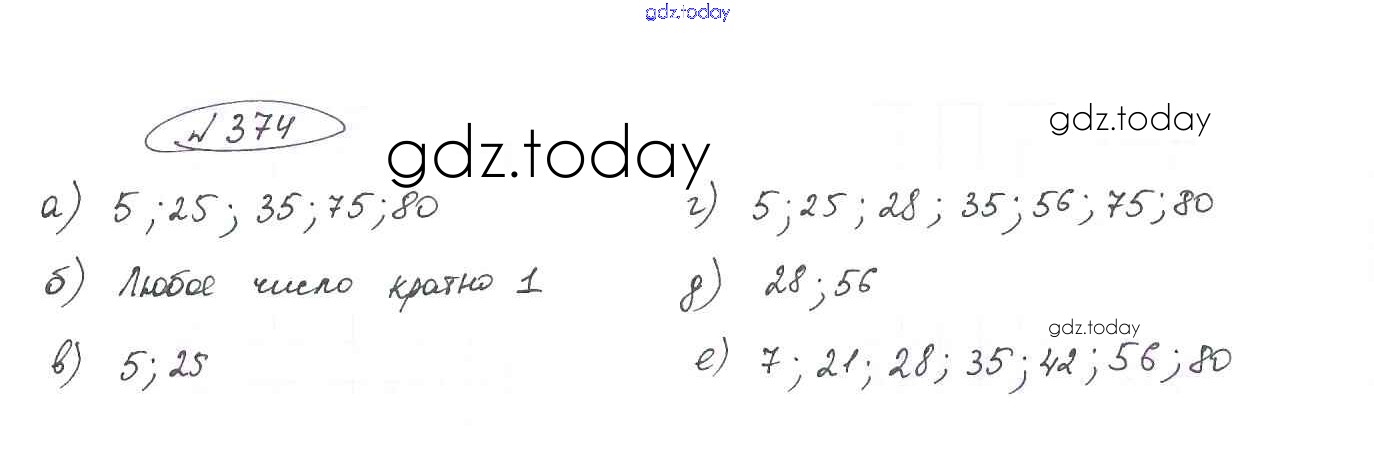 gdz.today
№ 374
gdz.today
gdz.today
а) 5; 25; 35; 75; 80
б) Любое число кратно 1
в) 5; 25
г) 5; 25; 28; 35; 56; 75; 80
д) 28; 56
gdz.today
е) 7; 21; 28; 35; 42; 56; 80